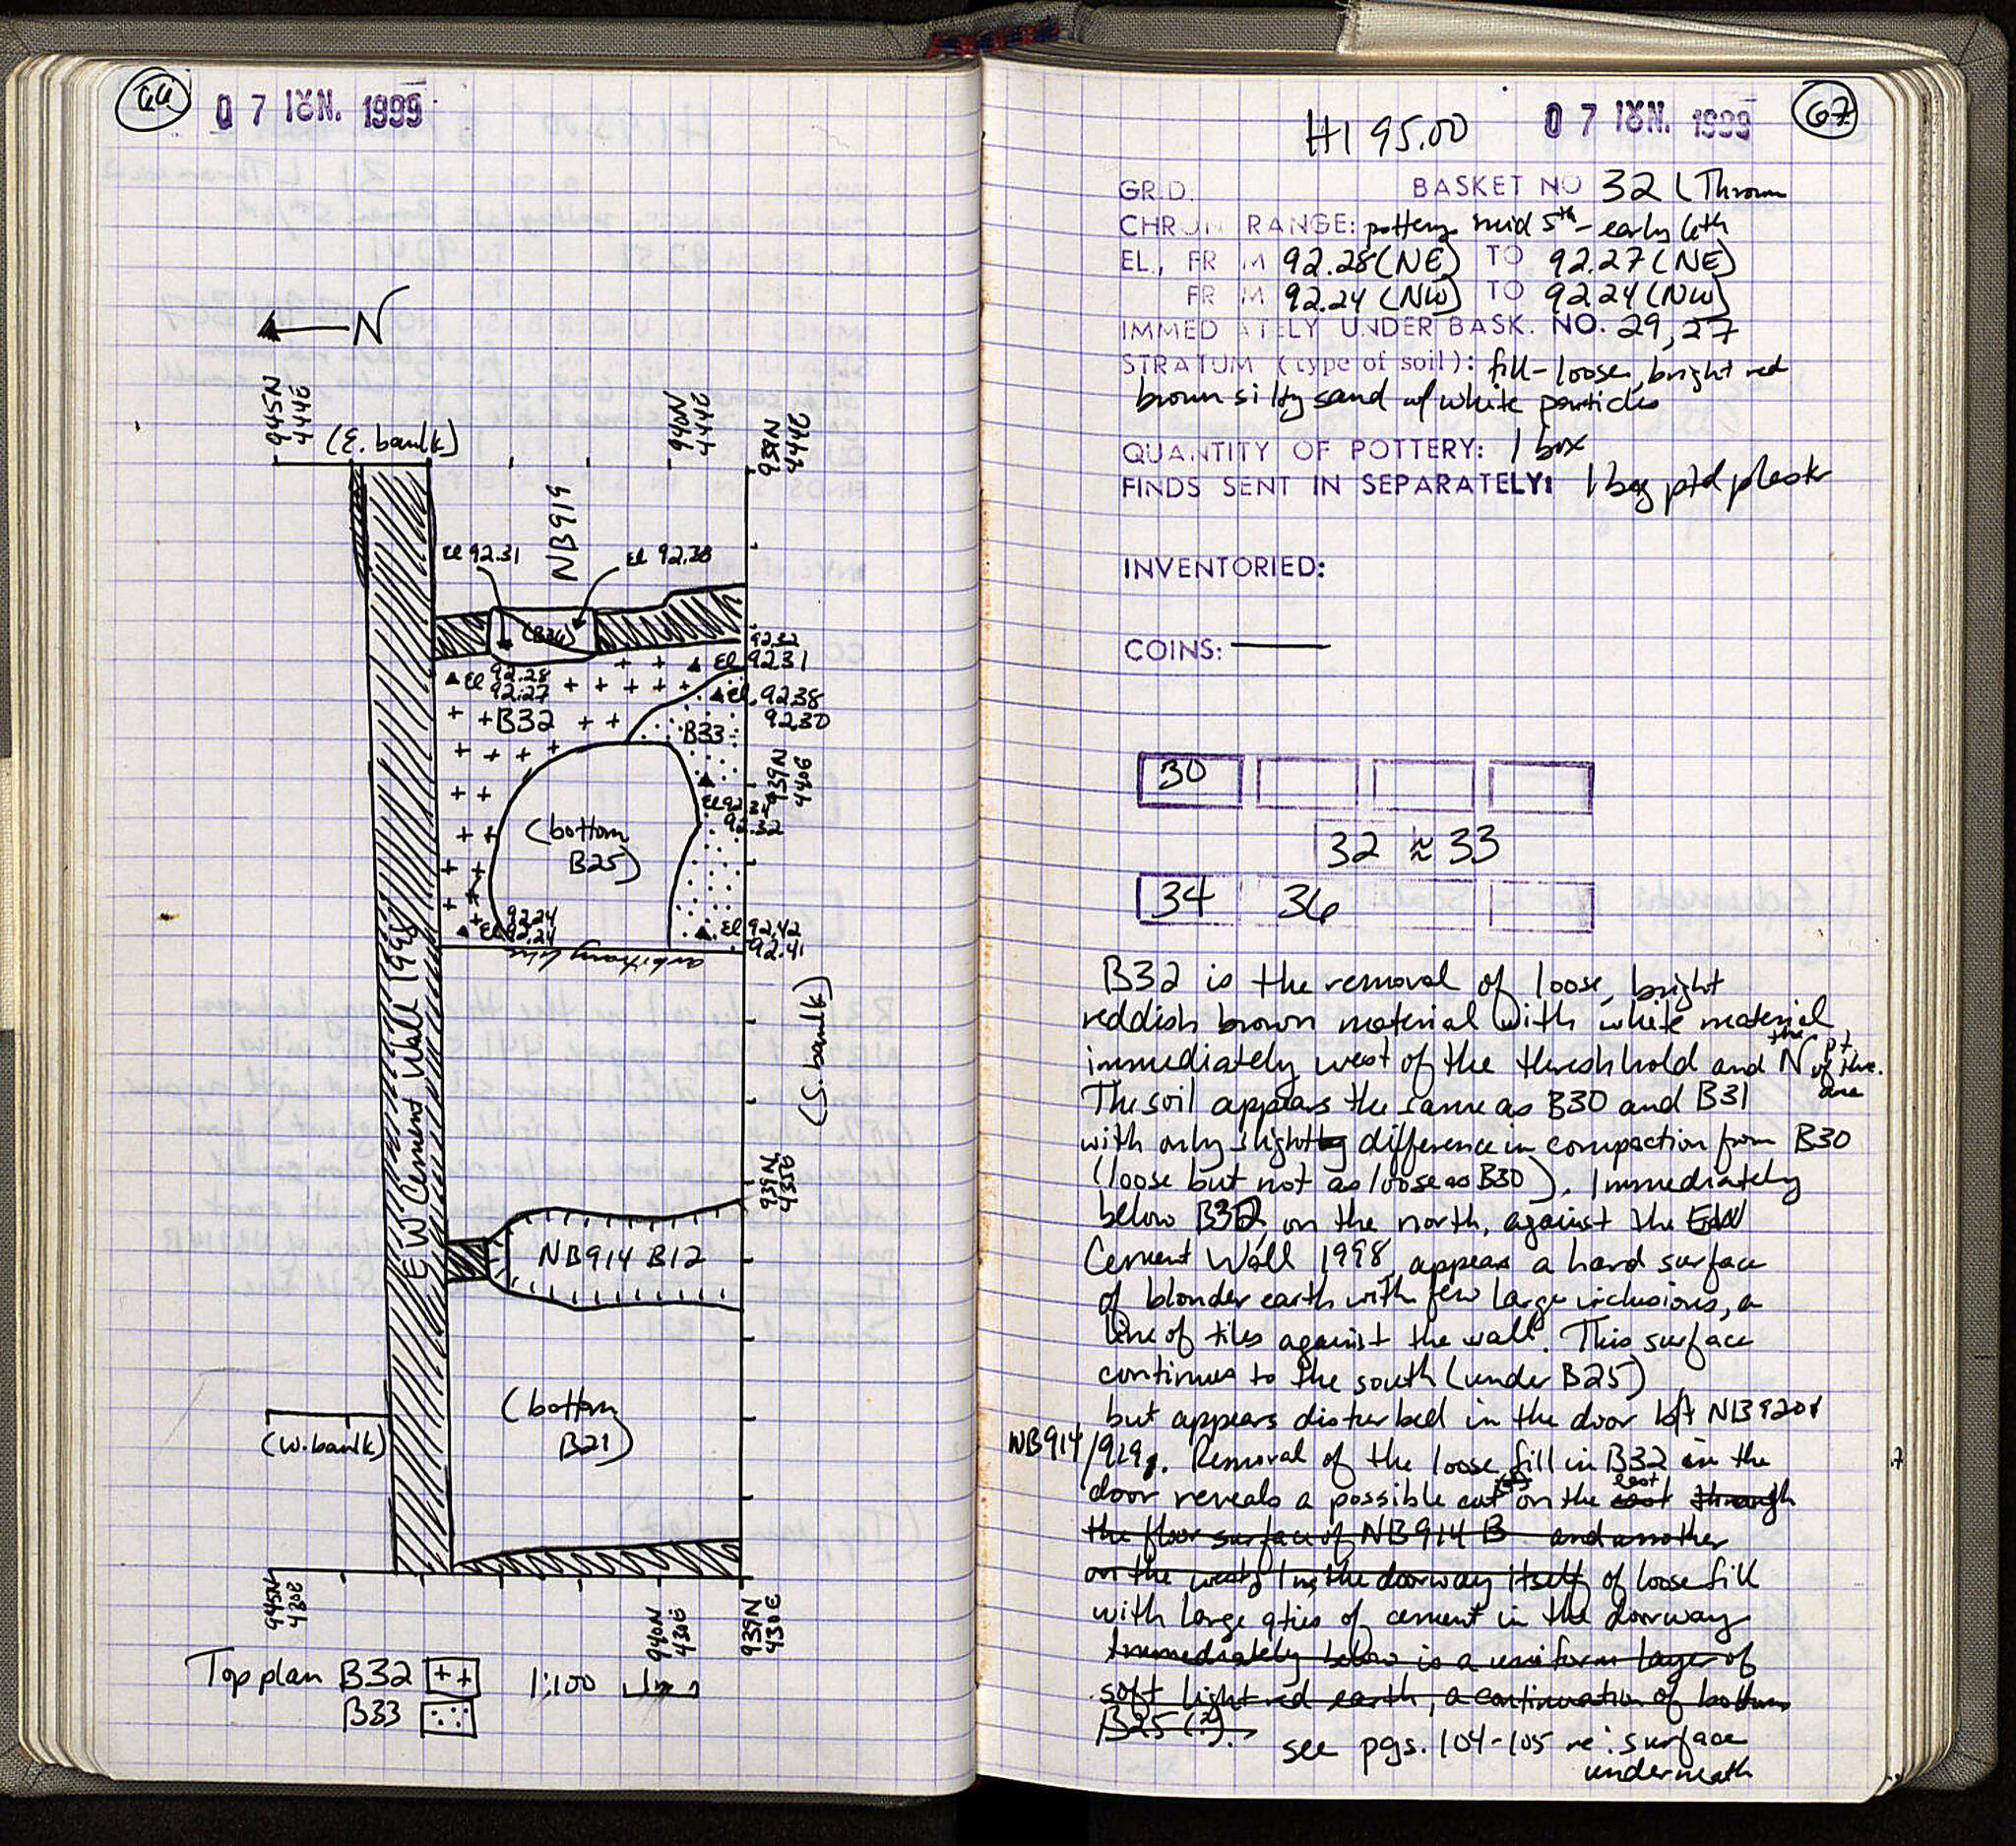 66
07 ΙΟΥΝ. 1999
N
945N
444E
(E. baulk)
940N
444E
939N
444E
NB919
el 92.31
el 92.38
(B36)
92.32
El 92.31
El 92.28
92.27
El. 92.38
92.30
B32
B33
939N
440E
El 92.34
92.32
(bottom
B25)
92.24
El 92.24
El 92.42
92.41
arbitrary line
E W Cement Wall 1998
(S. baulk)
939N
435E
NB914 B12
(bottom
B21)
(W. baulk)
945N
430E
940N
430E
939N
430E
Top plan B32 ++ 1:100 1m
B33
67
07 ΙΟΥΝ. 1999
H1 95.00
GRID. BASKET NO 32 (Thrown
CHRON RANGE: pottery mid 5th - early 6th
EL., FR M 92.28 (NE) TO 92.27 (NE)
FR M 92.24 (NW) TO 92.24 (NW)
IMMED ATELY UNDER BASK. NO. 29, 27
STRATUM (type of soil): fill - loose, bright red
brown silty sand w/ white particles
QUANTITY OF POTTERY: 1 box
FINDS SENT IN SEPARATELY: 1 bag ptd plastr
INVENTORIED:
COINS: —
30
32 ≈ 33
34 36
B32 is the removal of loose, bright
reddish brown material with white material
immediately west of the threshhold and the N pt. of the.
The soil appears the same as B30 and B31
with only slight difference in compaction from B30
(loose but not as loose as B30). Immediately
below B32, on the north, against the EW
Cement Wall 1998 appears a hard surface
of blonder earth with few large inclusions, a
line of tiles against the wall. This surface
continues to the south (under B25)
but appears disturbed in the door b/t NB920 &
NB914/919. Removal of the loose fill in B32 in the
door reveals a possible cut (s) on the east through
the floor surface of NB914 B and another
on the west, in the doorway itself of loose fill
with large qties of cement in the doorway
Immediately below is a uniform layer of
soft light red earth, a continuation of bottom
B25 (?).
see pgs. 104-105 re: surface
underneath